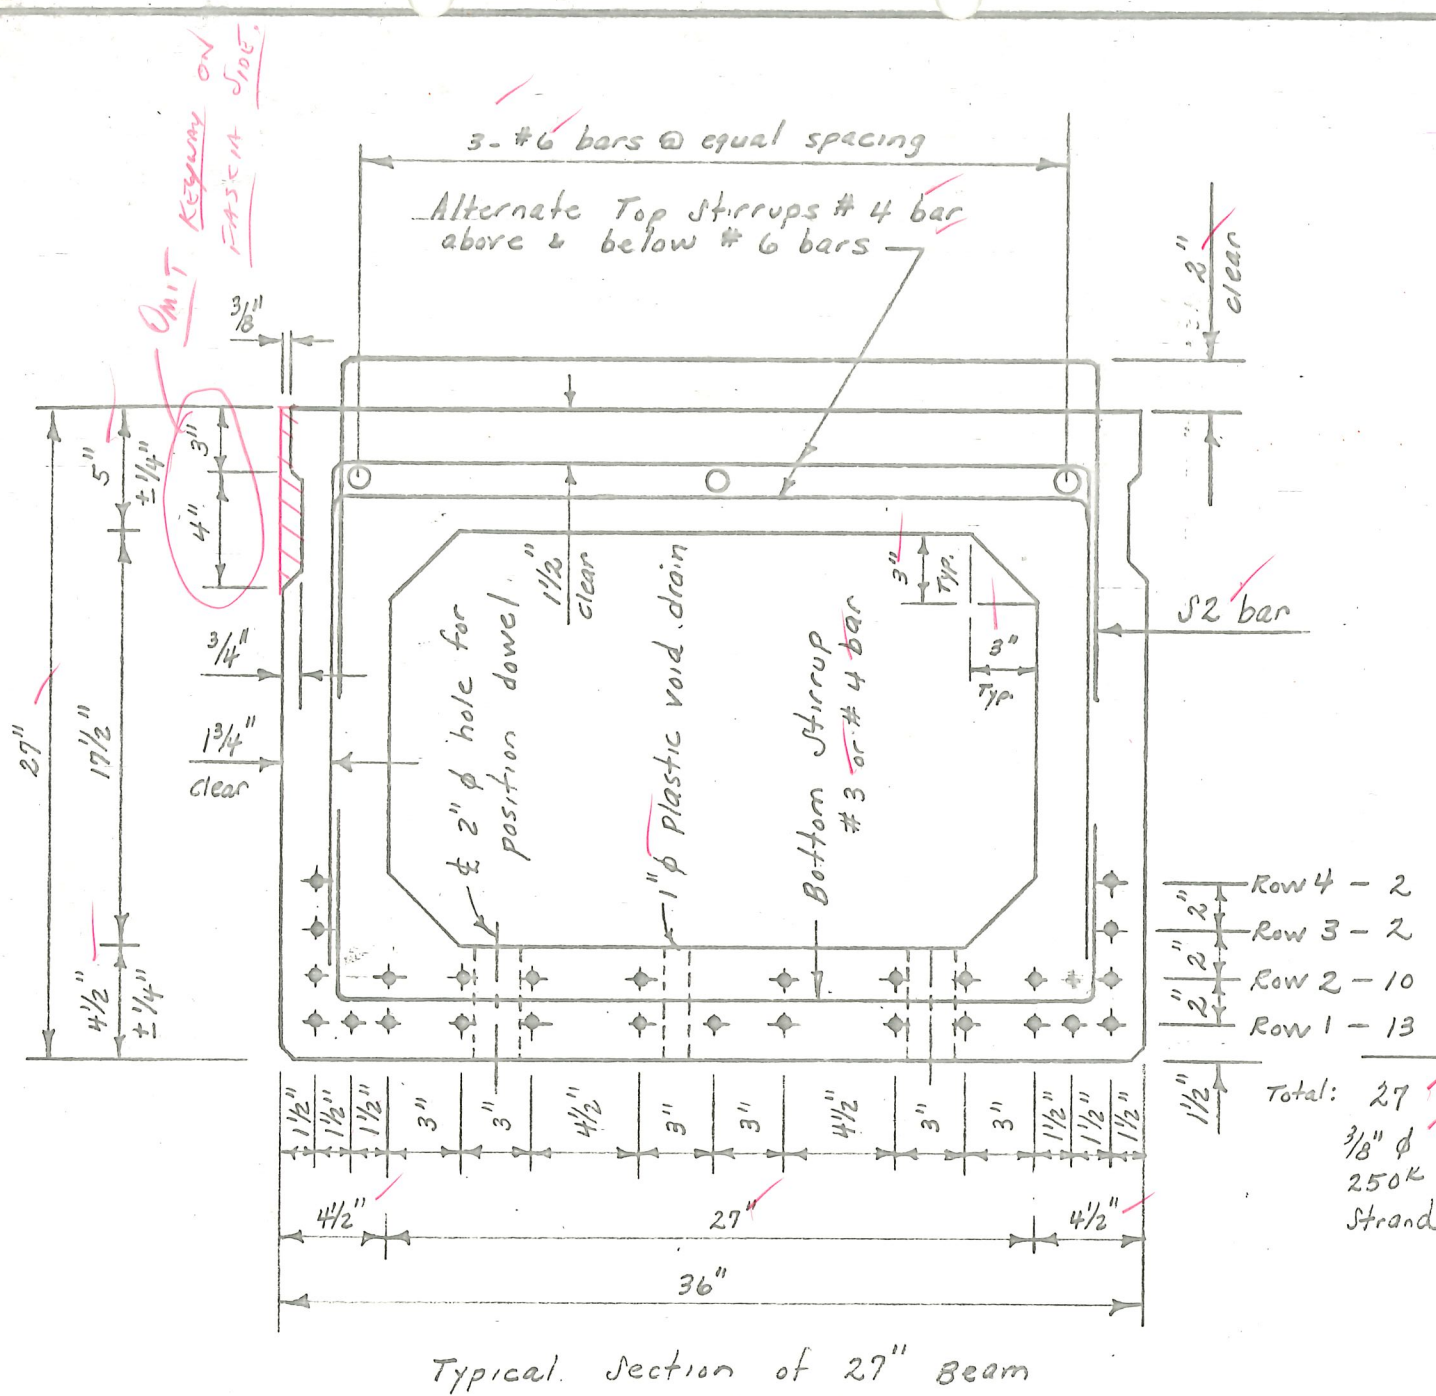 OMIT KEYWAY ON
FASCIA SIDE.
3-#6 bars @ equal spacing
Alternate Top Stirrups #4 bar
above & below #6 bars
2"
clear
3/8"
5"
±1/4"
3"
4"
1 1/2"
clear
3"
Typ.
3"
Typ.
S2 bar
3/4"
1 3/4"
clear
27"
17 1/2"
4 1/2"
±1/4"
℄ 2" ϕ hole for
position dowel
1" ϕ plastic void drain
Bottom Stirrup
#3 or #4 bar
Row 4 - 2
2"
Row 3 - 2
2"
Row 2 - 10
2"
Row 1 - 13
1 1/2"
Total: 27
3/8" ϕ
250K
Strand
1 1/2" 1 1/2" 1 1/2" 3" 3" 4 1/2" 3" 3" 4 1/2" 3" 3" 1 1/2" 1 1/2" 1 1/2"
4 1/2" 27" 4 1/2"
36"
Typical Section of 27" Beam